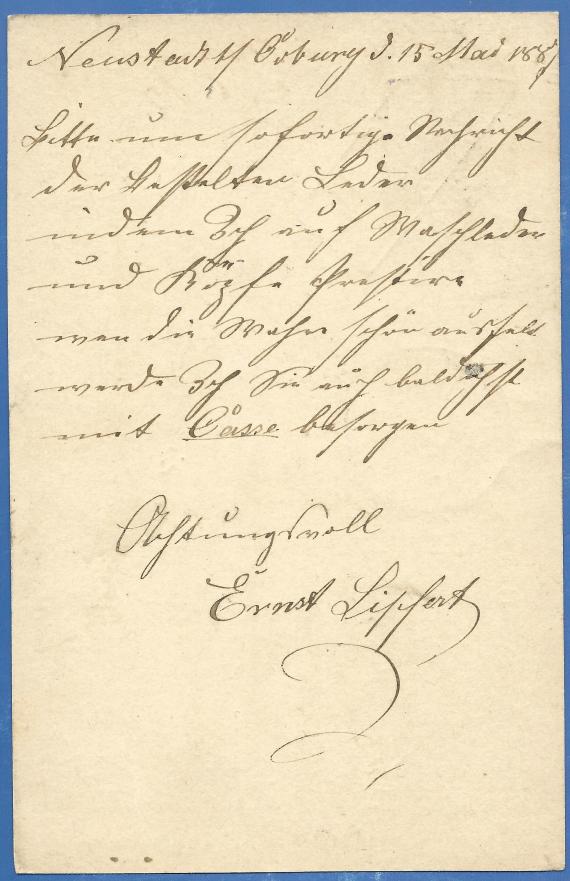 Neustadt b/ Coburg d. 15 Mai 188
Bitte um sofortige Nachricht
der bestelten Leder
indem Ich auf Waschleder
und Köpfe Prestire
wen die Wahre schön ausfelt
werde Ich Sie auch baldigst
mit Casse besorgen
Achtungsvoll
Ernst Liphert